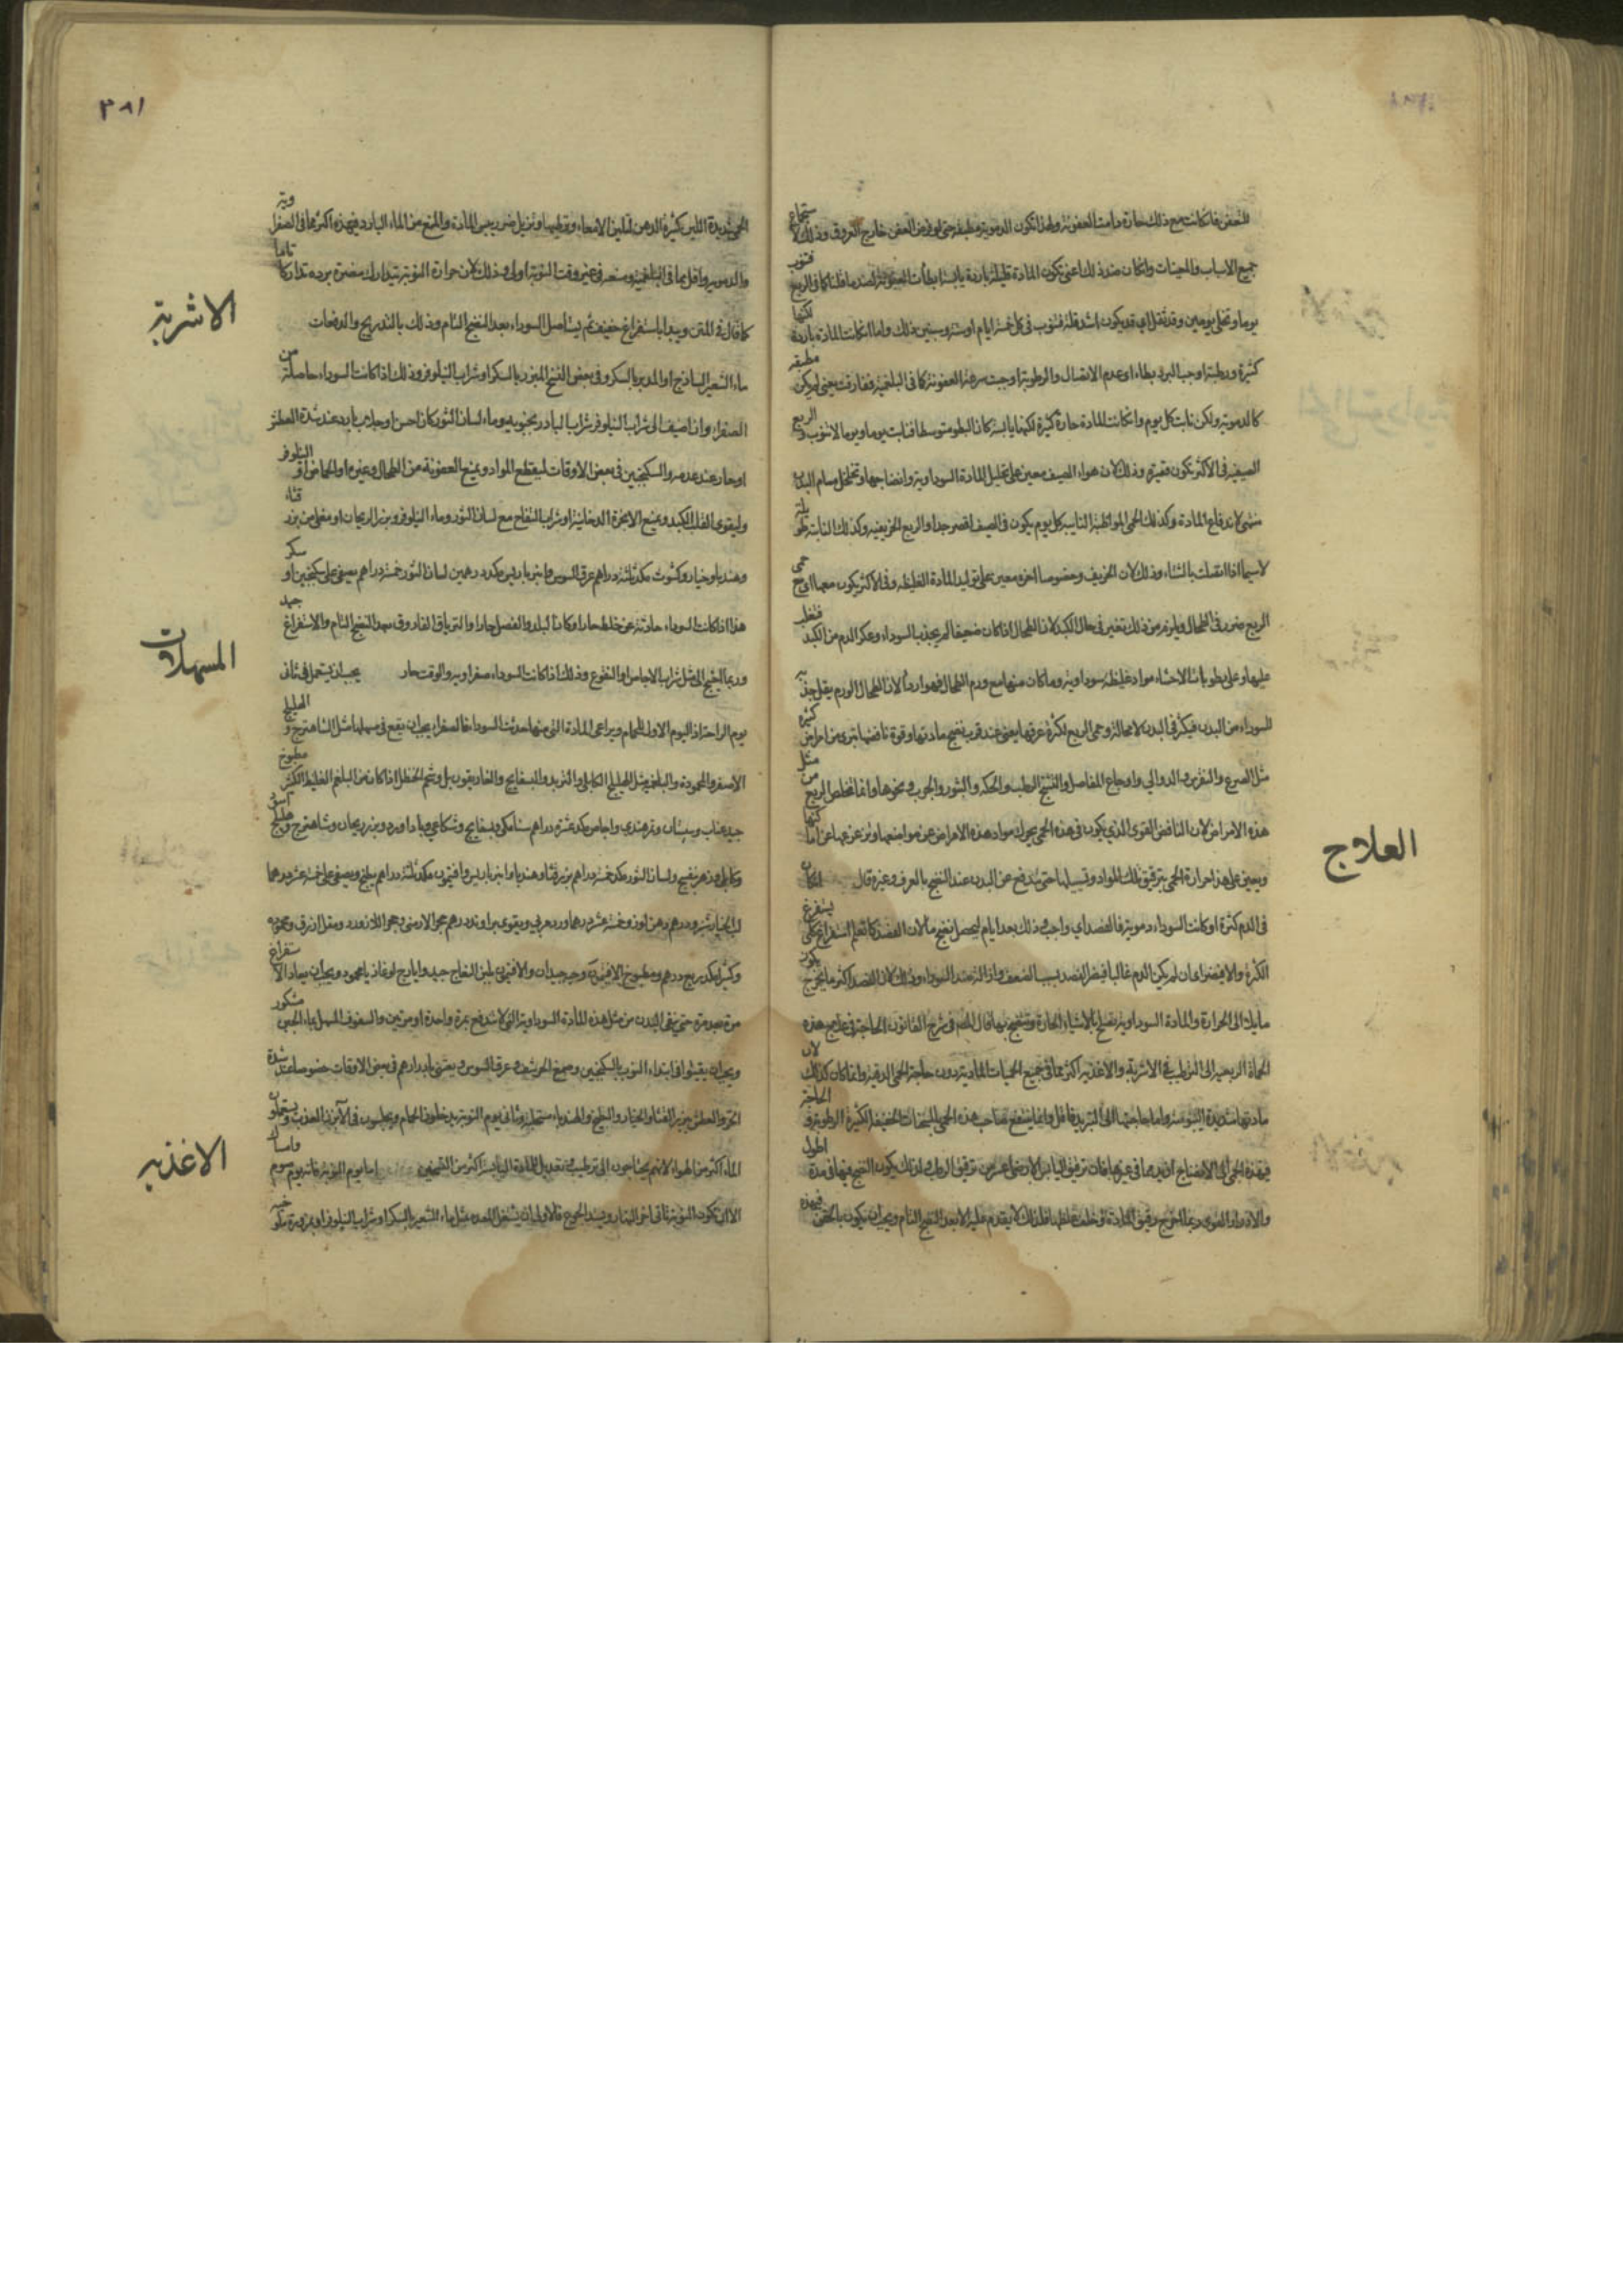 للتعفن فان كانت مع ذلك حارة دامت العفونة ولهذا تكون الدموية مطبقة حتى لو فرض العفن خارج العروق وذلك لاستجماع
جميع الاسباب والمعينات وان كان ضد ذلك اعني تكون المادة قليلة باردة يابسة ابطأت العفونة لضد ما قلنا كما في الربع فتنوب
يوما وتخلي يومين وقد تقل لاي قد يكون اشد قلة فتنوب في كل خمسة ايام او ستة وسنبين ذلك واما ان كانت المادة باردة لكنها
كثيرة ورطبة اوجب البرد بطاء او عدم الاتصال والرطوبة اوجبت سرعة العفونة كما في البلغمية ففارقت يعني لم يكن مطبقة
كالدموية ولكن نابت كل يوم وان كانت المادة حارة كثيرة لكنها يابسة كان البطو متوسطا فنابت يوما ويوما لا تنوب والربع
الصيفية في الاكثر تكون قصيرة وذلك لان هواء الصيف معين على تحليل المادة السوداوية وانضاجها وتخلخل مسام البدن
متهيئ لاندفاع المادة وكذلك الحمى المواظبة النايبة كل يوم يكون في الصيف اقصر جدا والربع الخريفية وكذلك النابتة طويلة
لاسيما اذا اتصلت بالشتاء وذلك لان الخريف وخصوصا اخره معين على توليد المادة الغليظة وفي الاكثر يكون معها اي حمى
الربع ضرر في الطحال ويلزم من ذلك تغير في حال الكبد لان الطحال اذا كان ضعيفا لم يجذب السوداء وعكر الدم من الكبد فتغلب
عليها وعلى رطوبات الاحشاء مواد غليظة سوداوية وما كان منها مع ورم الطحال فهو اردأ لان الطحال الورم يقل جذبه
للسوداء من البدن فيكثر في البدن لا محالة وحمى الربع لكثرة عرقها يعني عند قرب نضج مادتها وقوة نافضها تبرئ من امراض كثيرة
مثل الصرع والنقرس والدوالي واوجاع المفاصل والتشنج الرطب والحكة والبثور والجرب ونحوها وانما تخلص الربع من مثل
هذه الامراض لان النافض القوى الذي يكون في هذه الحمى يحرك مواد هذه الامراض عن مواضعها ويزعزعها عن اماكنها
ويعين على هذا حرارة الحمى بترقيق تلك المواد وتسييلها حتى تندفع عن البدن عند النضج بالعرق وغيره قال ان كان
العلاج
في الدم كثرة او كانت السوداء دموية فالفصد اي واجب وذلك بعد ايام ليحصل نضج ما لان الفصد كما تعلم استفراغ كلي يستفرغ
الكثرة والا فيضر اعني ان لم يكن الدم غالبا فيضر الفصد بسبب الضعف وازالة ضد السوداء وذلك لان الفصد اكثر ما يخرج يكون
مايلا الى الحرارة والمادة السوداوية تصلح بالاشياء الحارة وتنضج بها قال المص في شرح القانون الحاجة في علاج هذه
الحماة الربعية الى الترطيب في الاشربة والاغذية اكثر مما في جميع الحميات المادية دون حاجة الحمى الدقية وانما كان كذلك لان
مادتها شديدة اليبوسة واما حاجتها الى التبريد فاقل وانما ينتفع صاحب هذه الحمى بالمسخنات الخفيفة الكثيرة الرطوبة والحاجة
في هذه الحمى الى الانضاج ازيد مما في غيرها فان ترقيق اليابس الارضي اعسر من ترقيق الرطب ولذلك يكون النضج فيها في مدة اطول
والادوية القوية ربما اخرجت رقيق المادة وخلفت غليظها فلذلك لا يقدم عليه الا بعد النضج التام ويجب ان يكون بالحقن في هذه
٣٨١
الحمى شديدة اللين كثيرة الدهن لتلين الامعاء وترطبها وتزيل ضرر يبس المادة والمنع من الماء البارد في هذه اكثر مما في الصفراوية
والدموية واقل مما في البلغمية ومنعه في غير وقت النوبة اولى وذلك لان حرارة النوبة يتدارك مضرة برده تداركا تاما
كما قال في المتن ويبدأ باستفراغ خفيف ثم يستأصل السوداء بعد النضج التام وذلك بالتدريج والدفعات
الاشربة
ماء الشعير الساذج او المدبر بالسكر وفي بعض النسخ المبزر بالسكر او شراب النيلوفر وذلك اذا كانت السوداء حاصلة من
الصفراء وان اضيف الى شراب النيلوفر شراب البادرنجبويه وماء لسان الثور كان احسن او جلاب بارد عند شدة العطش
او حار عند عدمه والسكنجبين في بعض الاوقات ليقطع المواد ويمنع العفونة من الطحال وغيره او الحماض او النيلوفر
وليقوى القلب والكبد ويمنع الابخرة الدخانية او شراب التفاح مع لسان الثور وماء النيلوفر وبزر الريحان او مغلى من بزر قثاء
وهندبا وخيار وكشوث مكد ثلثة دراهم عرق السوس وانبرباريس مكد درهمين لسان الثور خمسة دراهم يصفى على سكنجبين او سكر
هذا اذا كانت السوداء حادثة عن خلط حار او كان البلد والفصل حارا والترياق الفاروق بعد النضج التام والاستفراغ جيد
وربما احتيج الى مثل شراب الاجاص او النقوع وذلك اذا كانت السوداء صفراوية والوقت حار يجب ان يستعمل في ثاني
المسهلات
يوم الراحة اذ اليوم الاول للحمام ويراعى المادة التي منها حدثت السوداء فالصفراء يجب ان يقع في مسهلها مثل الشاهترج والهليلج
الاصفر والمحمودة والبلغم مثل الهليلج الكابلي والتربد والبسفايج والغاريقون بل وشحم الحنظل اذا كان من البلغم الغليظ الكثير مطبوخ
جيد عناب وسبستان وتمرهندي واجاص مكد عشرة دراهم سنامكي وبسفايج وشكاعي وباداورد وبزر ريحان وشاهترج وهليلج اسود
وكابلي وزهر بنفسج ولسان الثور مكد خمسة دراهم بزر قثا وهندبا وانبرباريس وافتيمون مكد ثلثة دراهم يطبخ ويصفى على خمسة عشر درهما
لب خيارشنبر ودرهم دهن لوز وخمسة عشر درهما ورد مربى ويقوى براوند درهم حجر الارمني وحجر اللازورد ومقل ازرق ومحموده
وكثيرا مكد ربع درهم ومطبوخ الافتيمون وحبه جيدان والافتيمون بلبن اللقاح جيد وايارج لوغاذيا محمود ويجب ان يعاد الاستفراغ
مرة بعد مرة حتى ينقى البدن من مثل هذه المادة السوداوية التي لا تندفع بمرة واحدة او مرتين والسفوف المسهل بماء الجبن مشكور
ويجب ان يقيئوا في ابتداء النوب بالسكنجبين وصمغ الحرشف وعرق السوس ويعتنى بادرارهم في بعض الاوقات خصوصا عند شدة
الحر والعطش ببزر القثاء والخيار والبطيخ والهندباء مستحلبة وثاني يوم النوبة يدخلون الحمام ويجلسون في الآبزن العذب ويستعملون
الماء اكثر من الهواء لانهم يحتاجون الى ترطيب وتعديل للمادة اليابسة اكثر من التسخين اما يوم النوبة فانه يوم صوم وامساك
الاغذية
الا ان تكون النوبة تاتي اخر النهار ويشتد الجوع فلا ولى ان يشغل المعده بمثل ماء الشعير بالسكر او شراب النيلوفر او مزورة